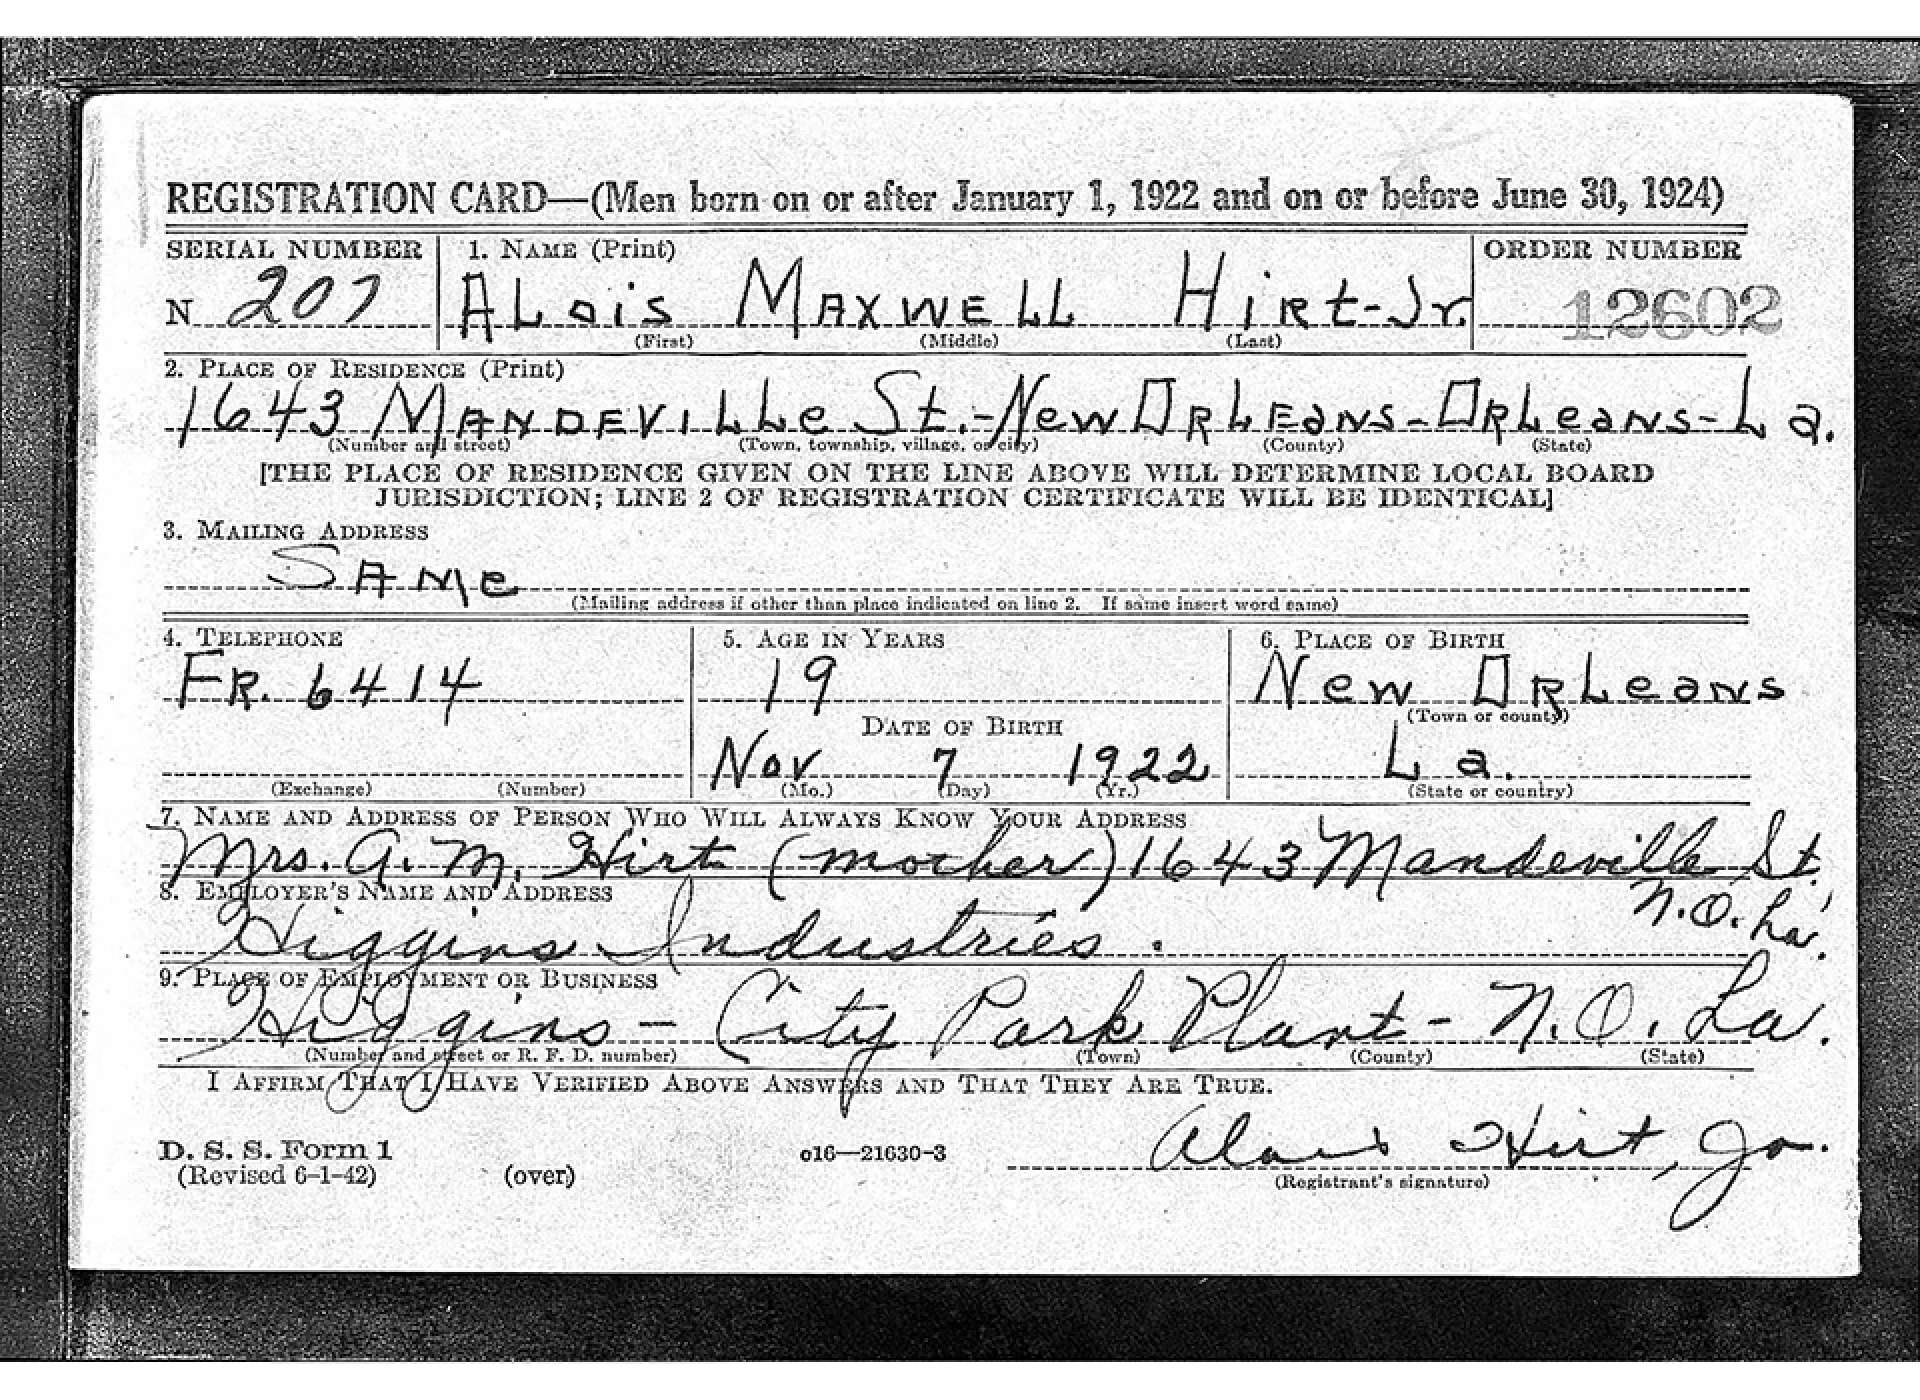 REGISTRATION CARD—(Men born on or after January 1, 1922 and on or before June 30, 1924)
SERIAL NUMBER 1. NAME (Print) ORDER NUMBER
N 207 ALois MAXWELL HiRt-Jr. 12602
(First) (Middle) (Last)
2. PLACE OF RESIDENCE (Print)
1643 MANDEVILLe St.-New ORLEans-ORLeans-La.
(Number and street) (Town, township, village, or city) (County) (State)
[THE PLACE OF RESIDENCE GIVEN ON THE LINE ABOVE WILL DETERMINE LOCAL BOARD
JURISDICTION; LINE 2 OF REGISTRATION CERTIFICATE WILL BE IDENTICAL]
3. MAILING ADDRESS
SAMe
(Mailing address if other than place indicated on line 2. If same insert word same)
4. TELEPHONE 5. AGE IN YEARS 6. PLACE OF BIRTH
FR. 6414 19 New ORLeans
DATE OF BIRTH (Town or county)
Nov 7 1922 La.
(Exchange) (Number) (Mo.) (Day) (Yr.) (State or country)
7. NAME AND ADDRESS OF PERSON WHO WILL ALWAYS KNOW YOUR ADDRESS
Mrs. A. M. Hirt (mother) 1643 Mandeville St.
8. EMPLOYER'S NAME AND ADDRESS N.O. La.
Higgins Industries.
9. PLACE OF EMPLOYMENT OR BUSINESS
Higgins - City Park Plant - N.O. La.
(Number and street or R. F. D. number) (Town) (County) (State)
I AFFIRM THAT I HAVE VERIFIED ABOVE ANSWERS AND THAT THEY ARE TRUE.
Alois Hirt, Jr.
D. S. S. Form 1 o16—21630-3
(Revised 6-1-42) (over) (Registrant's signature)